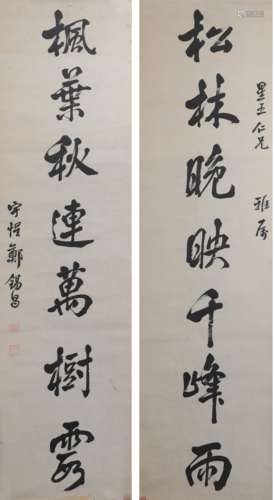 松林晚映千峰雨
仁兄 雅屬
楓葉秋連萬樹霞
鄭錫昌